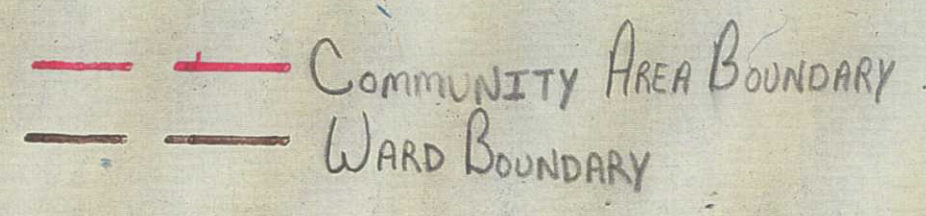 Community Area Boundary
Ward Boundary